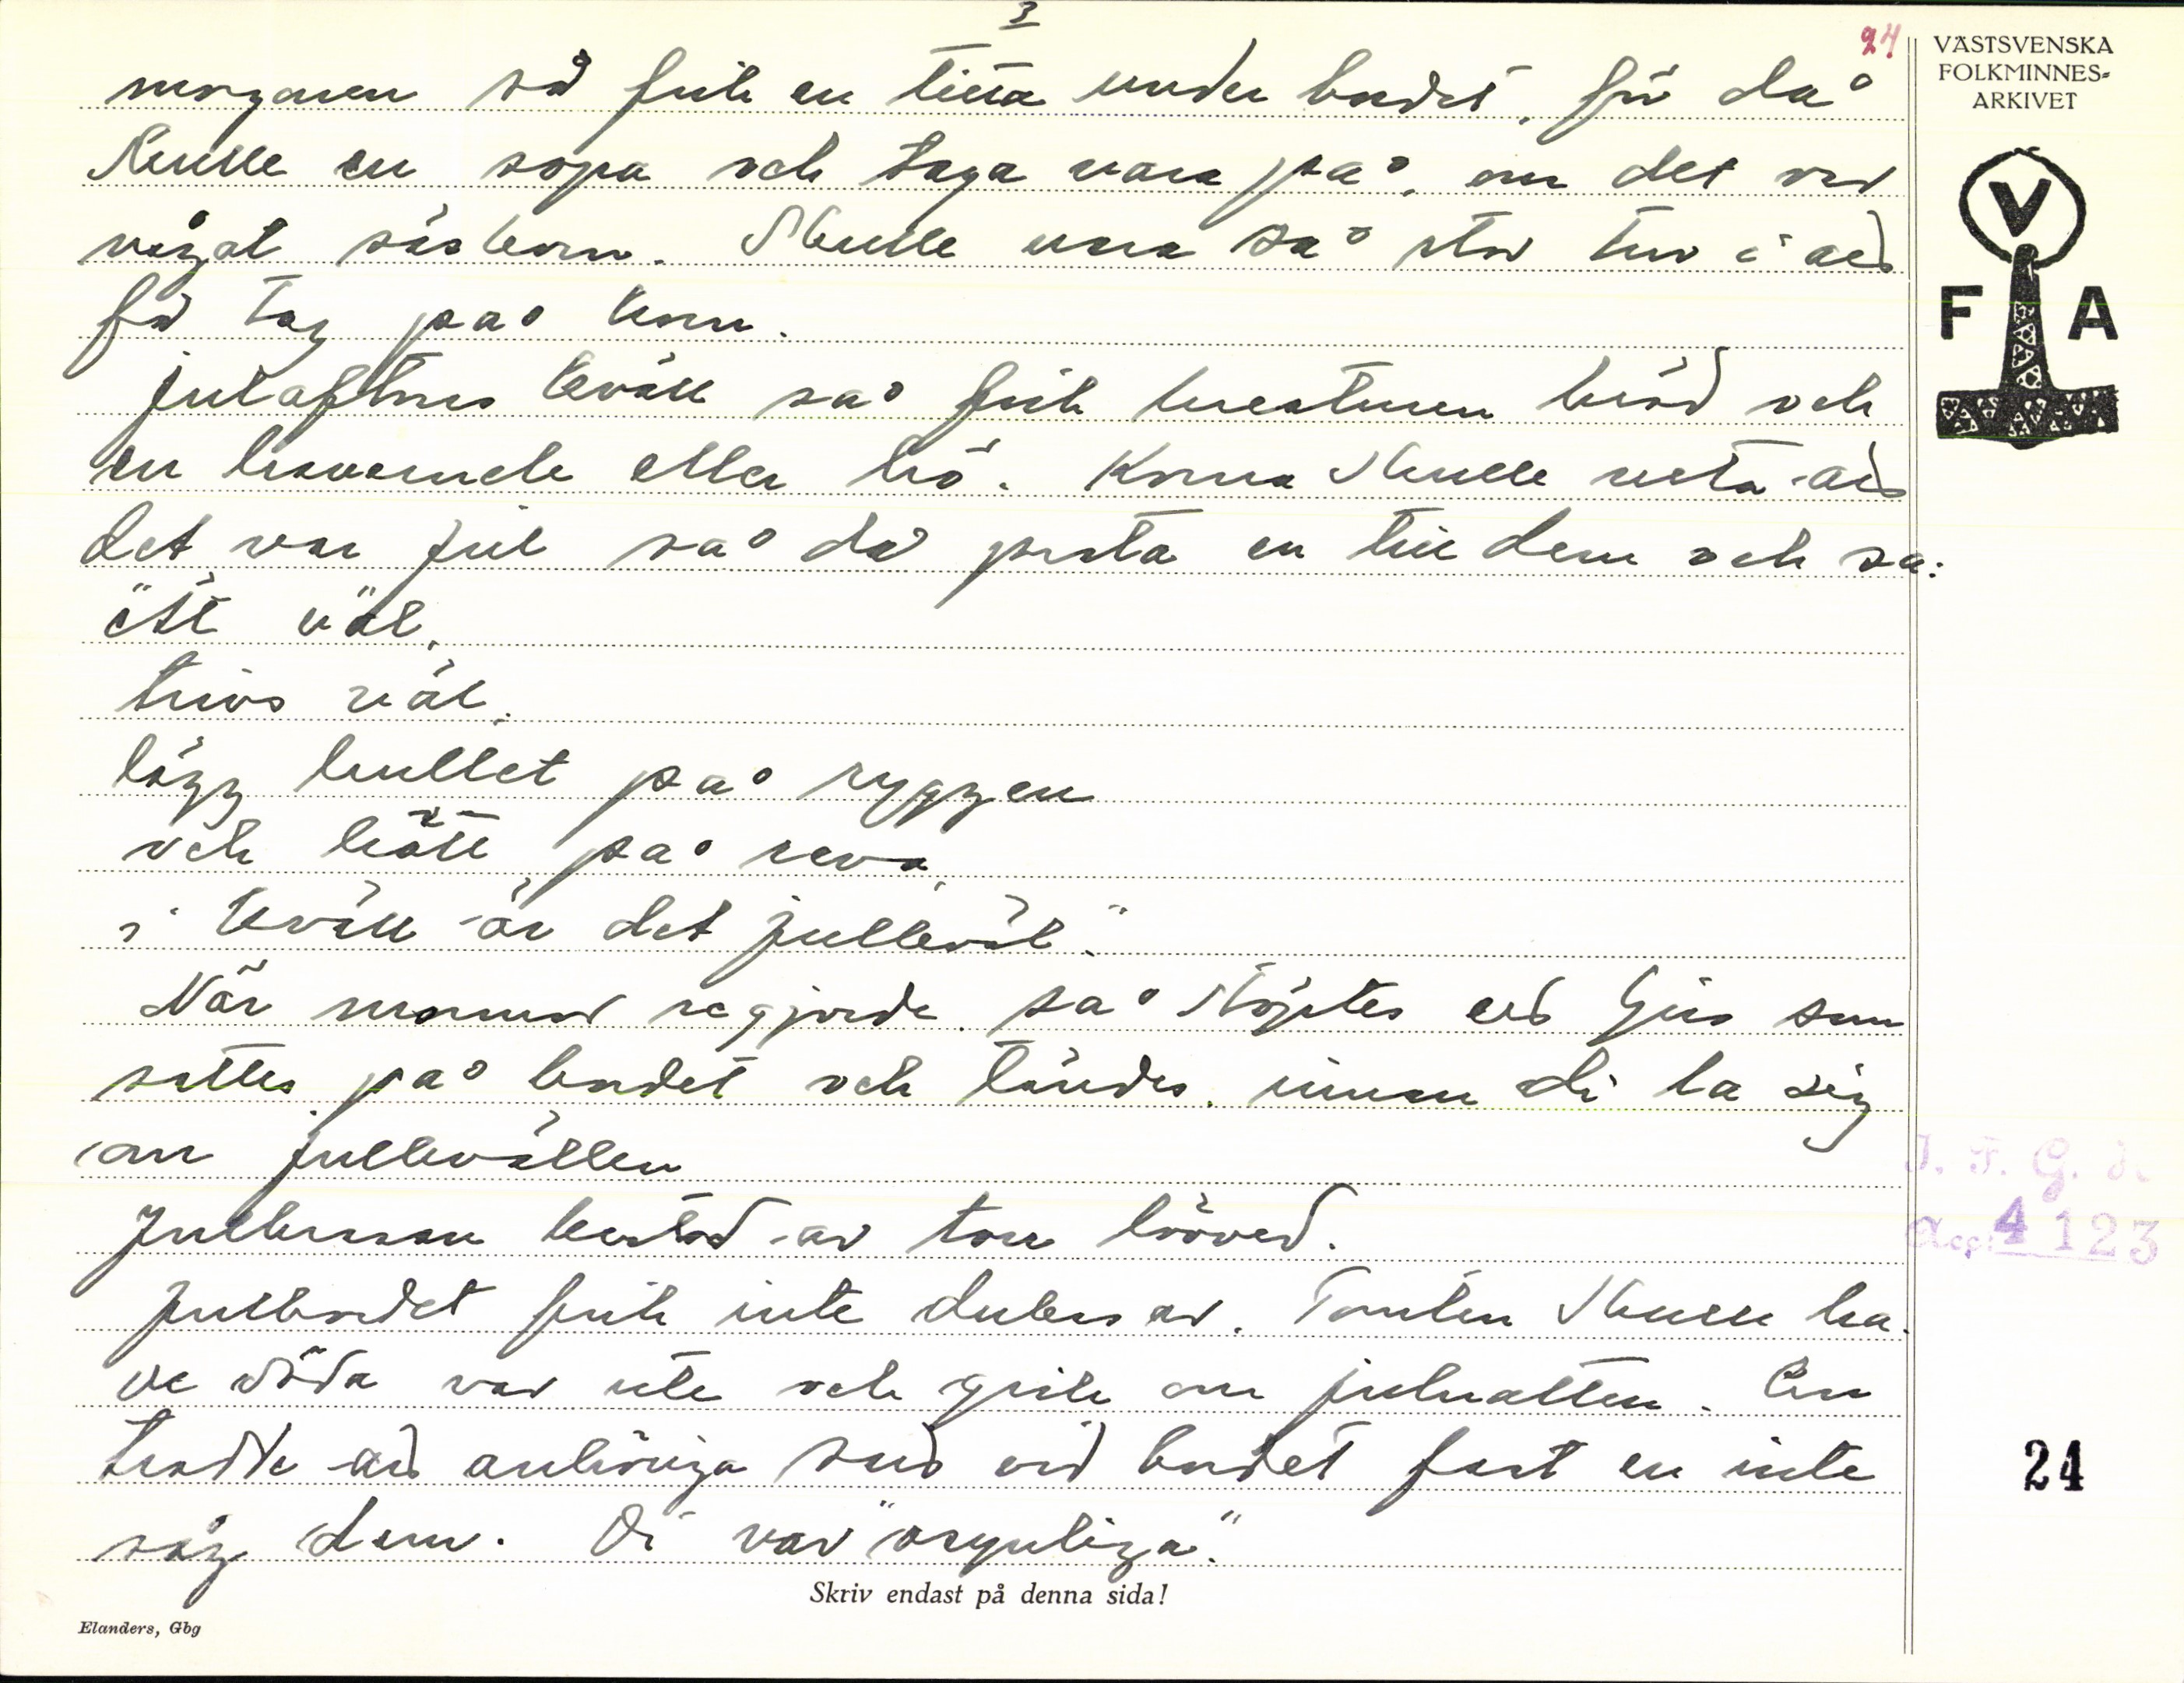 3
24
morgonen så fick en titta under bordet, för då
skulle en sopa och taga vara på, om det var
något säskorn. Skulle vara så stor tur i att
få tag på korn.
julaftons kväll så fick kreaturen bröd och
en havrenek eller hö. Korna skulle veta att
det var jul så då prata en till dem och sa:
"ätt väl,
trivs väl,
lägg hullet på ryggen
och kött på reva,
i kväll är det jullkväl."
När mormor regjorde, så stöptes ett ljus som
sattes på bordet och tändes, innan di la sig
om jullkvällen
Jullbrasan bestod av torr lööved.
Julbordet fick inte dukas av. Tomten skulle ha.
De döda var ute och gick om julnatten. En
trodde att anhöriga satt vid bordet fast en inte
såg dem. Di var "osynliga".
Skriv endast på denna sida!
Elanders, Gbg
VÄSTSVENSKA
FOLKMINNES-
ARKIVET
V
F A
I. F. G. H.
Acc: 4123
24